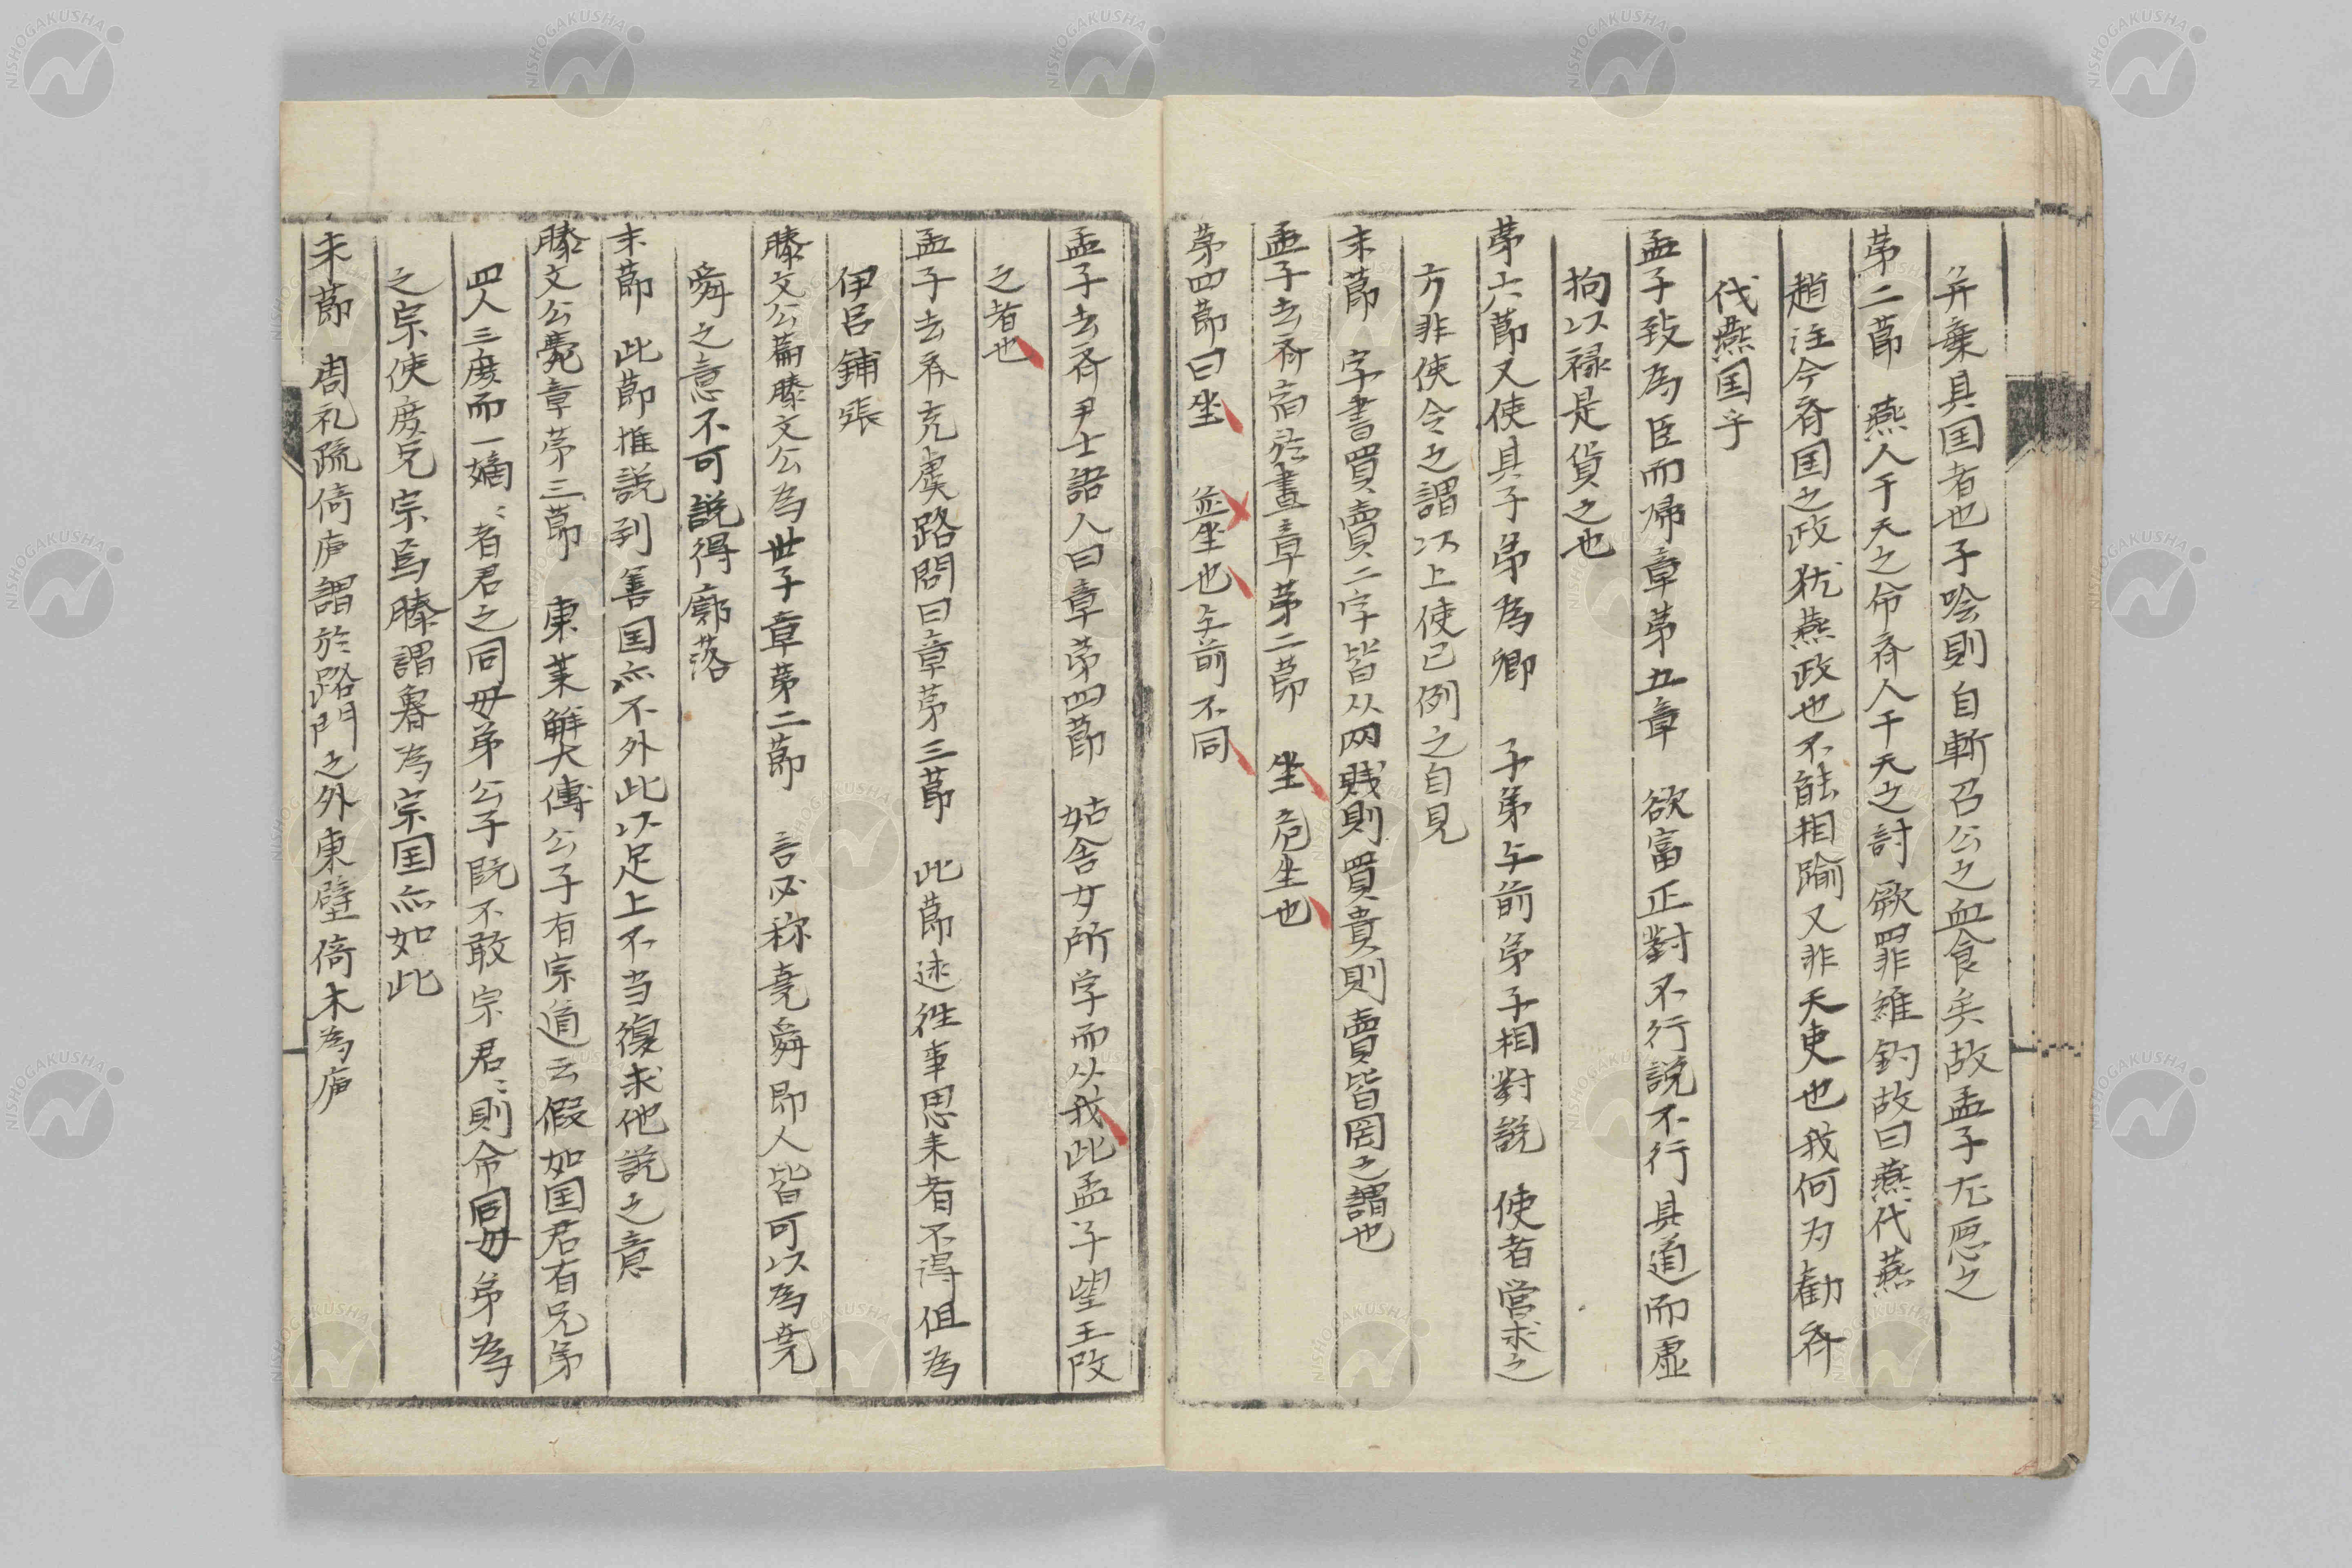 弃棄具国者也子噲則自斬召公之血食矣故孟子尤悪之
第二節　燕人干天之命斉人干天之討厥罪維鈞故曰燕代燕
趙注今斉国之政犹燕政也不能相踰又非天吏也我何为勧斉
伐燕国乎
孟子致為臣而帰章第五章　欲富正對不行説不行其道而虚
拘以禄是貨之也
第六節又使其子弟為卿　子弟与前弟子相對説　使者営求之
方非使令之謂以上使已例之自見
末節　字書買賣二字皆从网賎則買貴則賣皆罔之謂也
孟子去斉宿於晝章第二節　坐危坐也
第四節曰坐　並坐也与前不同
孟子去斉尹士語人曰章第四節　姑舎女所学而从我此孟子望王改
之者也
孟子去斉充虞路問曰章第三節　此節述徃事思来者不得但為
伊呂鋪張
滕文公篇滕文公為世子章第二節　言必称堯舜即人皆可以為堯
舜之意不可説得廓落
末節　此節推説到善国亦不外此以足上不当復求他説之意
滕文公薨章第三節　東莱解大傳公子有宗道云假如国君有兄弟
四人三庶而一嫡〻者君之同毋弟公子既不敢宗君〻則命同毋弟為
之宗使庶兄宗焉滕謂魯為宗国亦如此
末節　周礼疏倚庐謂於路門之外東壁倚木為庐
NISHOGAKUSHA